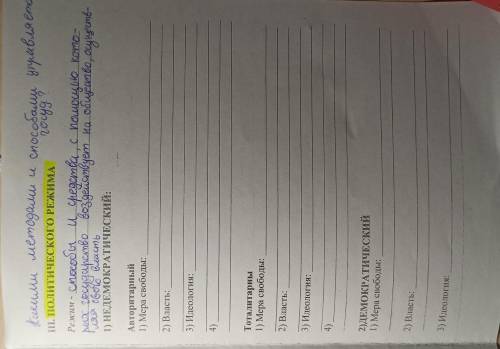 какими методами и способами управляется
госуд?
III. ПОЛИТИЧЕСКОГО РЕЖИМА
Режим - способы и средства, с помощью кото-
рых государство воздействует на общество, осуществ-
ляя свою власть
1) НЕДЕМОКРАТИЧЕСКИЙ:
Авторитарный
1) Мера свободы:
2) Власть:
3) Идеология:
4)
Тоталитарны
1) Мера свободы:
2) Власть:
3) Идеология:
4)
2)ДЕМОКРАТИЧЕСКИЙ
1) Мера свободы:
2) Власть:
3) Идеология: